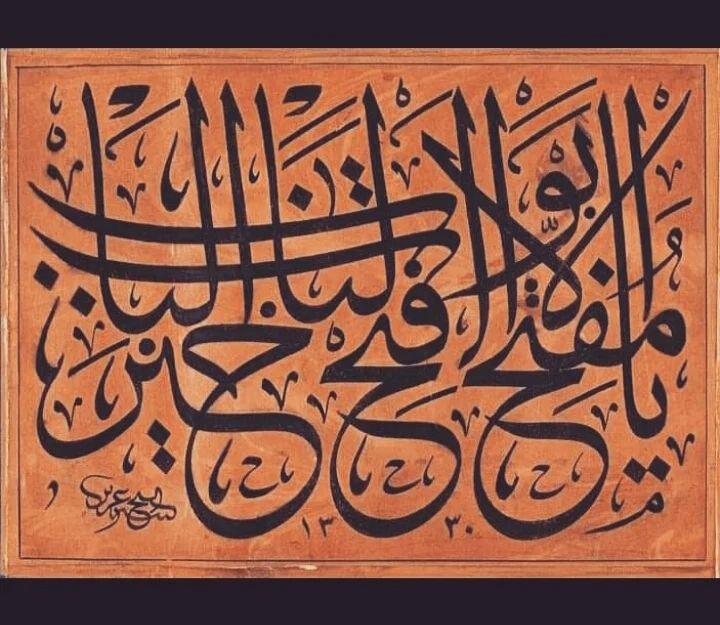 يا مفتح الابواب افتح لنا خير الباب
١٣٣٠